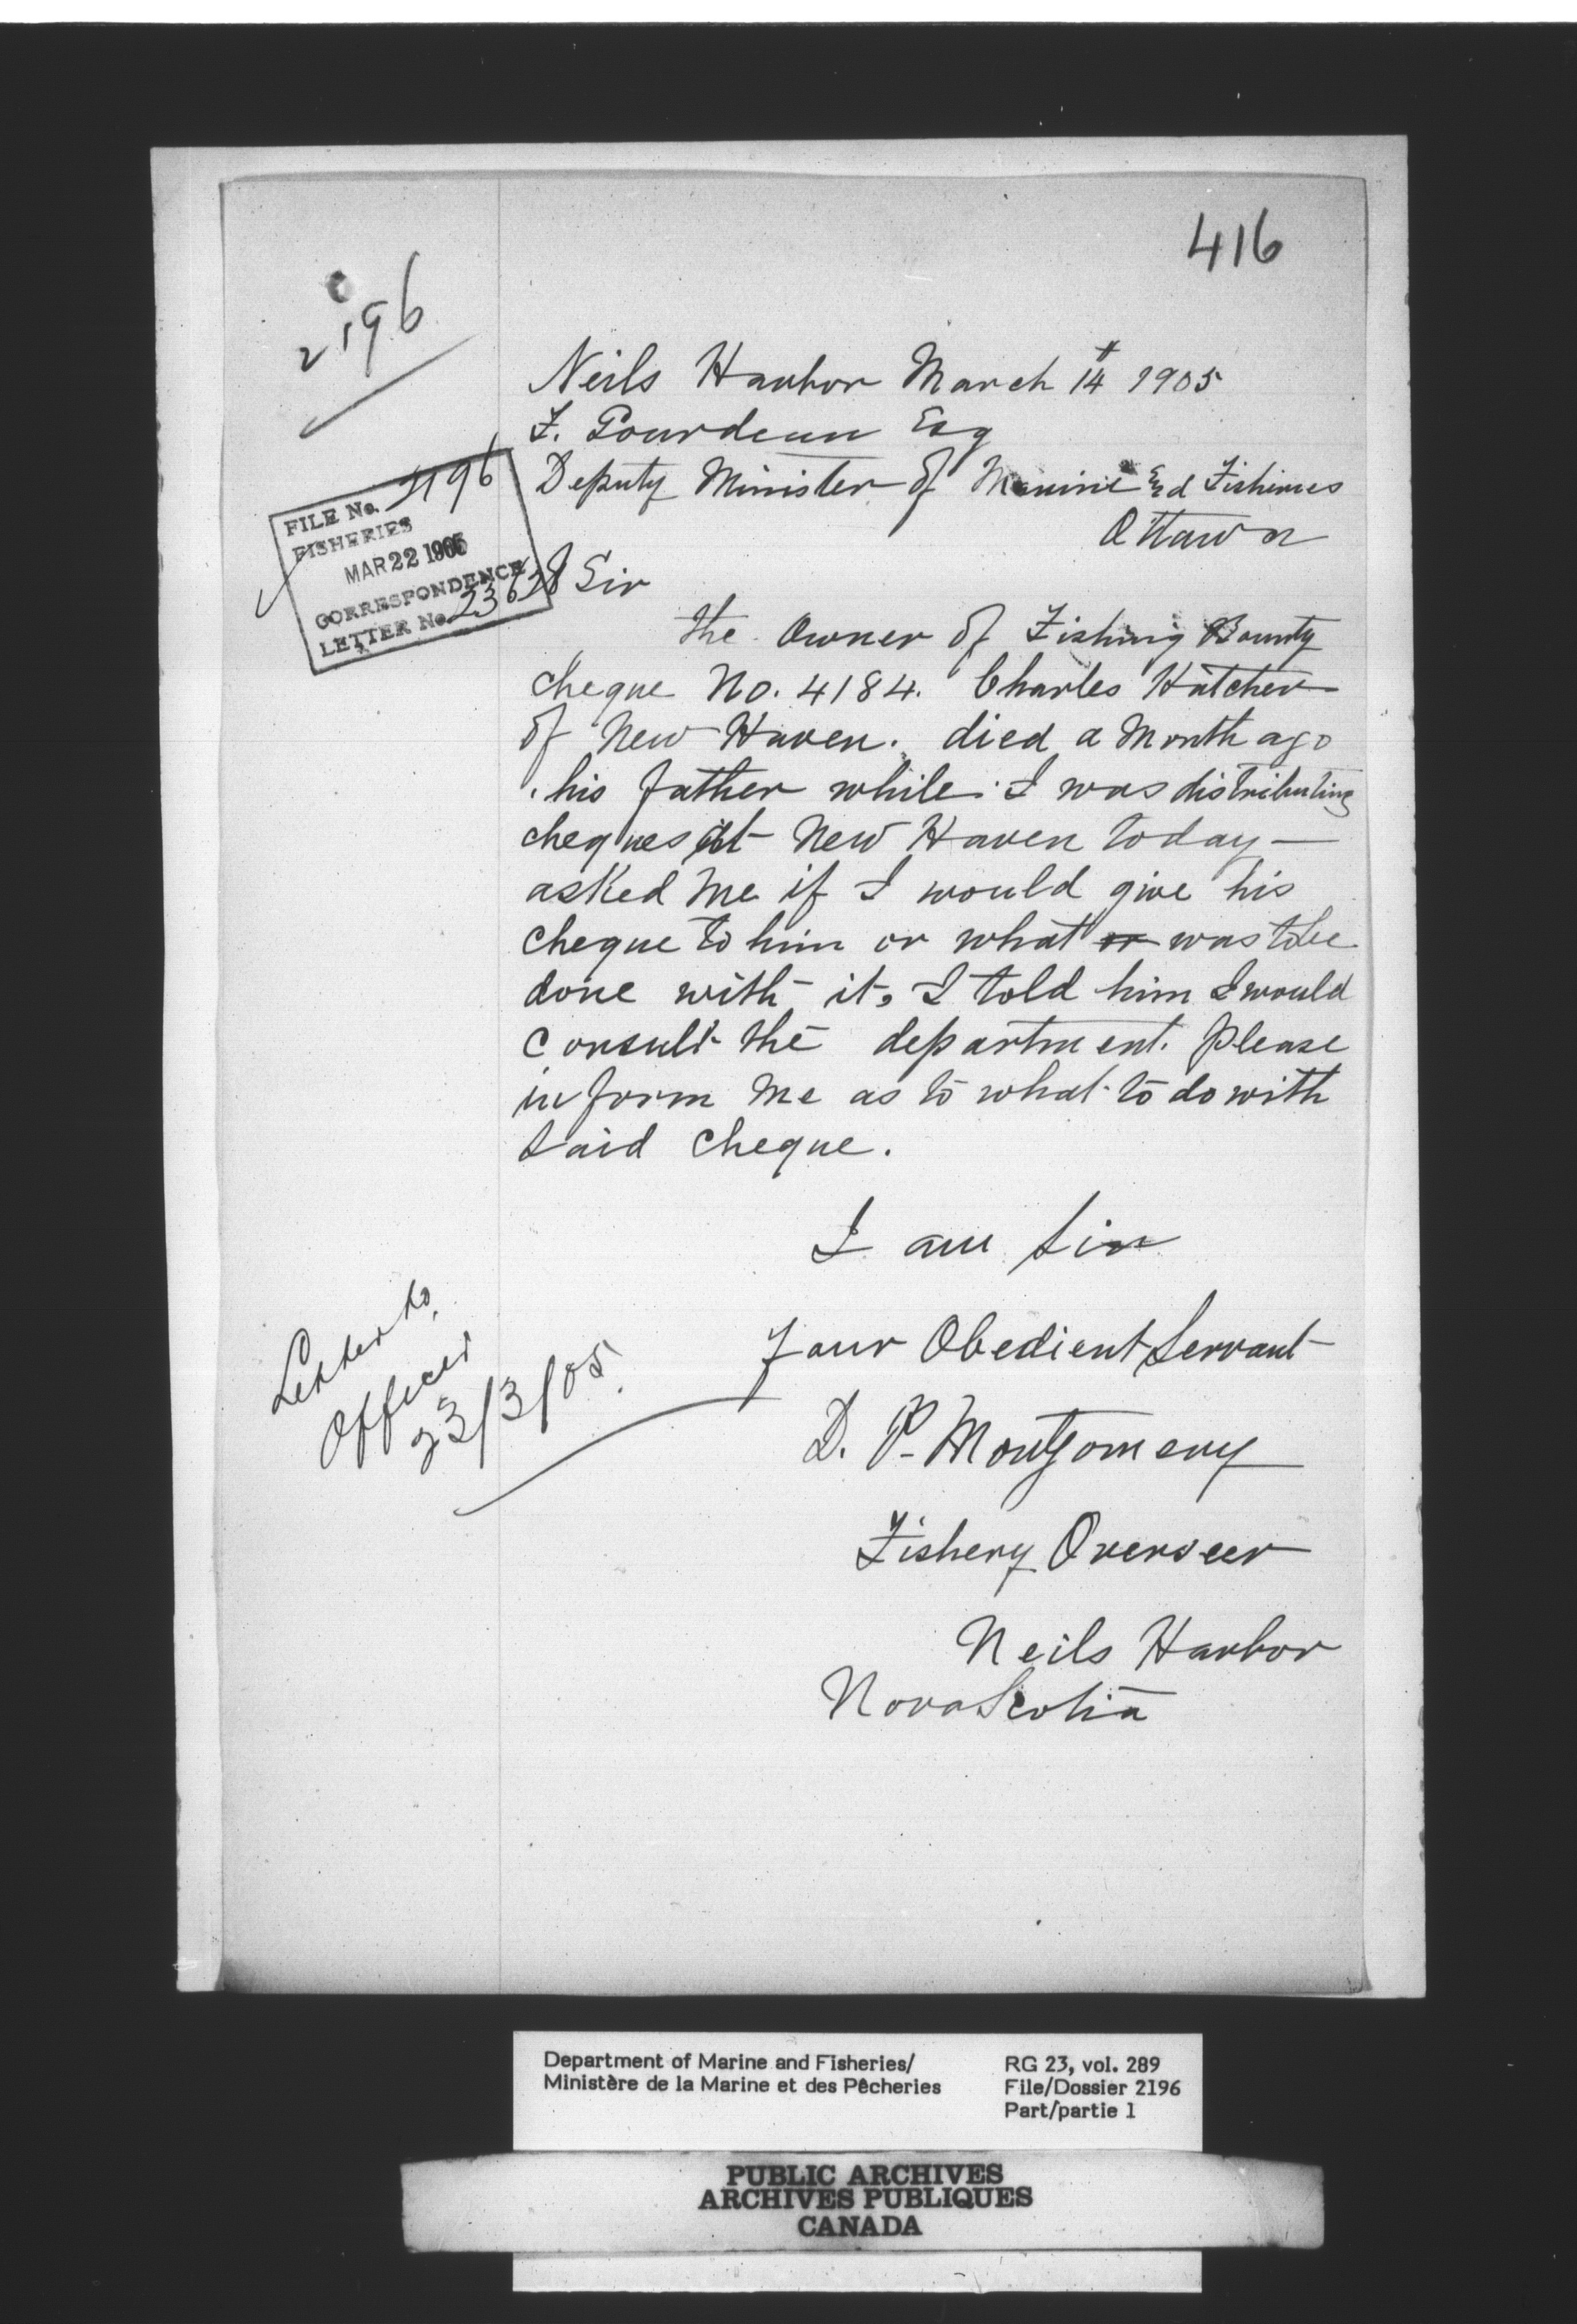 416
2196
Neils Harbor March 14 1905
F. Gourdeau Esq
Deputy Minister of Marine and Fisheries
Ottawa
FILE No. 2196
FISHERIES
MAR 22 1905
CORRESPONDENCE
LETTER No. 23628
Sir
the Owner of Fishing Bounty
cheque No. 4184. Charles Hatcher
of New Haven. died a Month ago
his father while I was distributing
cheques at New Haven today —
asked me if I would give his
cheque to him or what or was to be
done with it, I told him I would
consult the department. Please
inform me as to what to do with
said cheque.
I am Sir
Your Obedient Servant
Letter to
Officer
23/3/05.
D. P. Montgomery
Fishery Overseer
Neils Harbor
Nova Scotia
Department of Marine and Fisheries/
Ministère de la Marine et des Pêcheries
RG 23, vol. 289
File/Dossier 2196
Part/partie 1
PUBLIC ARCHIVES
ARCHIVES PUBLIQUES
CANADA